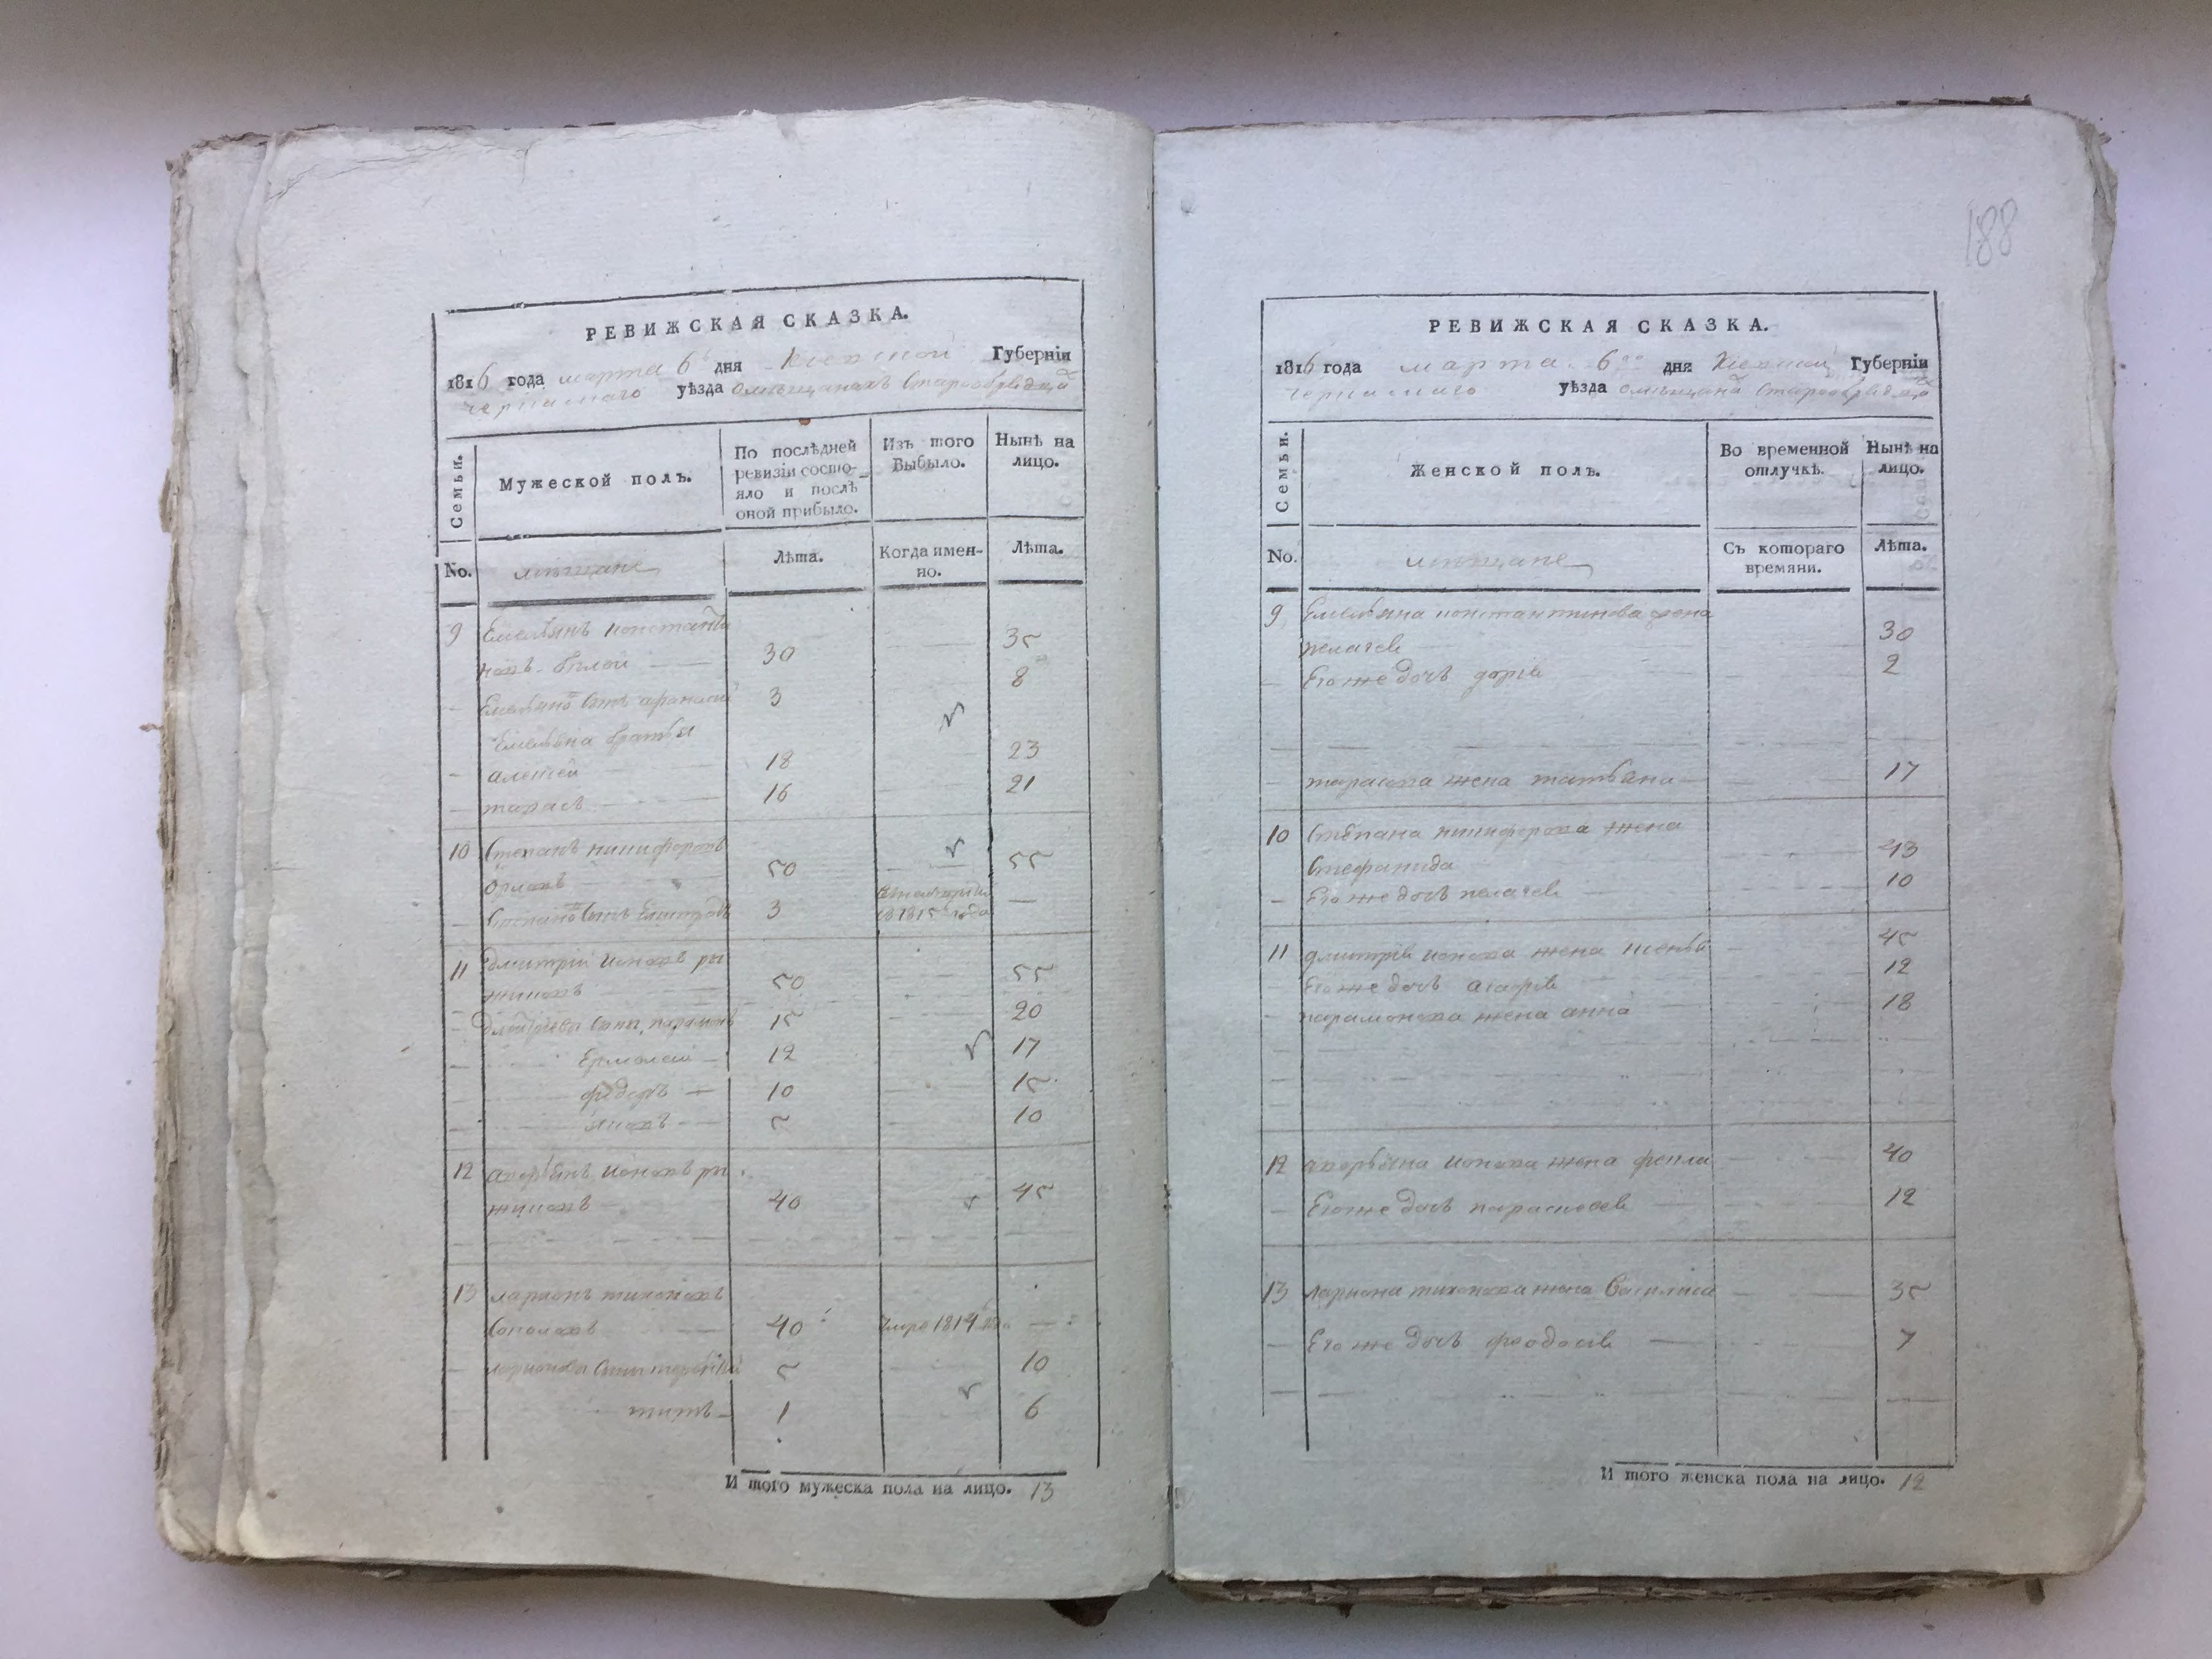 РЕВИЖСКАЯ СКАЗКА.
1816 года марта 6 дня Киевской Губернїи
черкаскаго уѣзда омѣщанахъ Старообрядца
Семьи.
Мужеской полъ.
По послѣдней ревизїи состо-
яло и послѣ
оной прибыло.
Изъ того
Выбыло.
Нынѣ на
лицо.
No.
мѣщане
Лѣта.
Когда имен-
но.
Лѣта.
9 Емельянъ константи
новъ Бѣлой 30 35
Емельяно Сынъ афанасий 3 8
Емельяна братья
алексей 18 23
тарасъ 16 21
10 Степанъ никифоровъ
Орловъ 50 55
Степано Сынъ 3 1815 года
11 Дмитрий Ионовъ ры
жиковъ 50 55
Дмитриевы Сыны парамонъ 15 20
Ермолай 12 17
федоръ 10 15
5 10
12 аверьянъ Ионовъ ры
жиковъ 40 45
13 ларионъ тихоновъ
Соколовъ 40 Умре 1814 года
ларионовы Сыны терентий 5 10
титъ 1 6
И того мужеска пола на лицо. 13
188
РЕВИЖСКАЯ СКАЗКА.
1816 года марта 6го дня Киевской Губернїи
черкаскаго уѣзда омѣщана Старообрядца
Семьи.
Женской полъ.
Во временной
отлучкѣ.
Нынѣ на
лицо.
No.
мѣщане
Съ котораго
времяни.
Лѣта.
9 Емельяна константинова жена
пелагея 30
Егоже дочь дария 2
тарасова жена татьяна 17
10 Степана никифорова жена
Стефанида 43
Егоже дочь пелагея 10
11 дмитрия ионова жена ксенья 45
Егоже дочь 12
парамонова жена анна 18
12 аверьяна ионова жена фекла 40
Егоже дочь парасковея 12
13 лариона тихонова жена Василиса 35
Егоже дочь феодосия 7
И того женска пола на лицо. 12